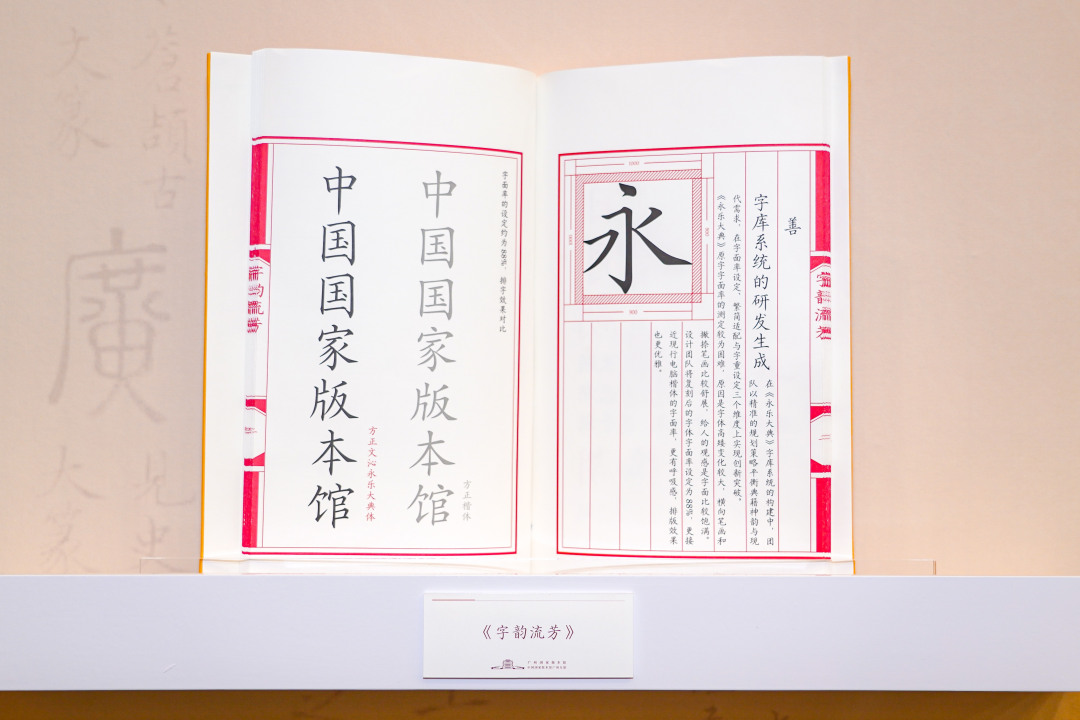 善
字库系统的研发生成
在《永乐大典》字库系统的构建中，团
队以精准的规划策略平衡典籍神韵与现
代需求，在字面率设定、繁简适配与字重设定三个维度上实现创新突破。
《永乐大典》原字字面率的测定较为困难，原因是字体高矮变化较大，横向笔画和
撇捺笔画比较舒展，给人的观感是字面比较饱满。
设计团队将复刻后的字体字面率设定为88%，更接
近现行电脑楷体的字面率，更有呼吸感，排版效果
也更优雅。
永
1000
900
字韵流芳
二
字面率的设定约为88%，排字效果对比
中国国家版本馆
方正楷体
中国国家版本馆
方正文沁永乐大典体
字韵流芳
《字韵流芳》
大家
古
廣